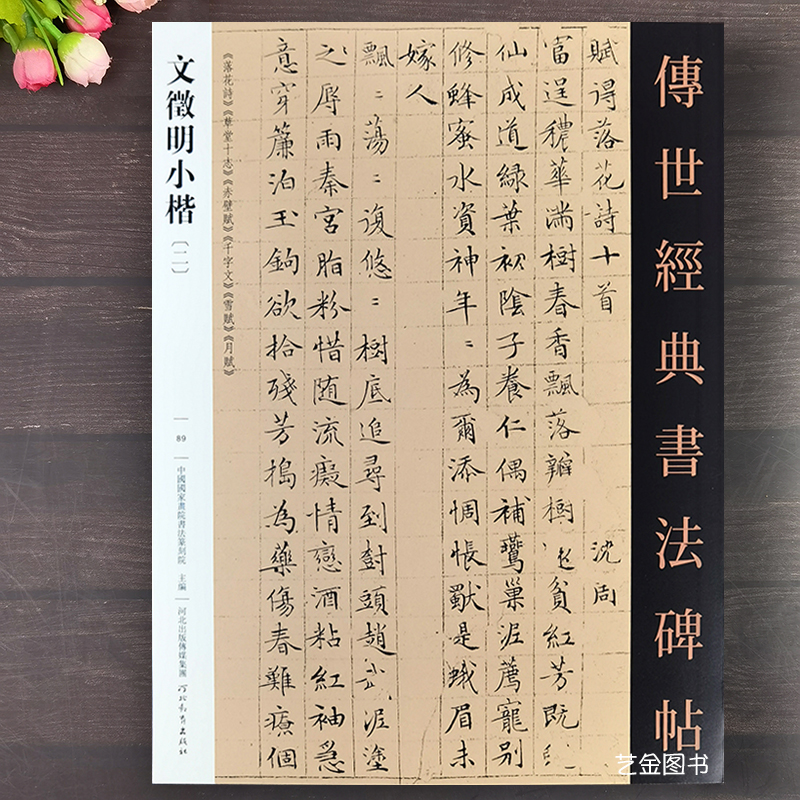 傳世經典書法碑帖
賦得落花詩十首 沈周
富逞穠華滿樹春香飄落瓣樹還貧紅芳既
仙成道綠葉初陰子養仁偶補鶯巢泥薦寵別
修蜂蜜水資神年〻為爾添惆悵獸是蛾眉未
嫁人
飄〻蕩〻復悠〻樹底追尋到樹頭趙泥塗
之辱雨秦宮脂粉惜随流癡情戀酒粘紅袖急
意穿簾泊玉鉤欲拾殘芳搗為藥傷春難療個
《落花詩》《草堂十志》《赤壁賦》《千字文》《雪賦》《月賦》
文徵明小楷〔二〕
89
中國國家畫院書法篆刻院 主編
河北出版傳媒集團
河北教育出版社
艺金图书